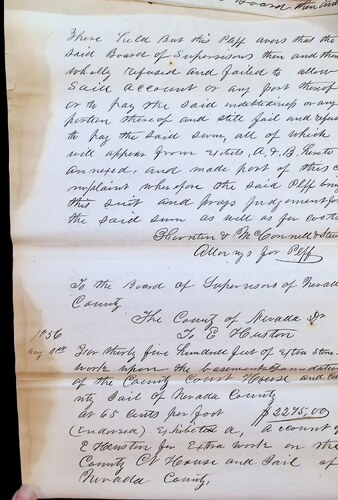 Board then and
there held But this Plff avers that the
said Board of Supervisors then and there
wholly refused and failed to allow
said account or any part thereof
or to pay the said indebtedness or any
portion thereof and still fail and refuse
to pay the said sum, all of which
will appear from Exhibits, A, & B, hereto
annexed, and made part of this c
omplaint wherefore the said Plff brings
this suit and prays judgement for
the said sum as well as for costs
Thornton & McConnell &
Attorneys for Plff
To the Board of Supervisors of Nevada
County
The County of Nevada Dr
1856 To E Huston
Aug For thirty five hundred feet of extra stone
work upon the basement foundation
of the County Court House and Cou
nty Jail of Nevada County
At 65 cents per foot $2275,00
(Endorsed). Exhibit a, Account of
E Huston for Extra work on the
County Ct House and Jail of
Nevada County,